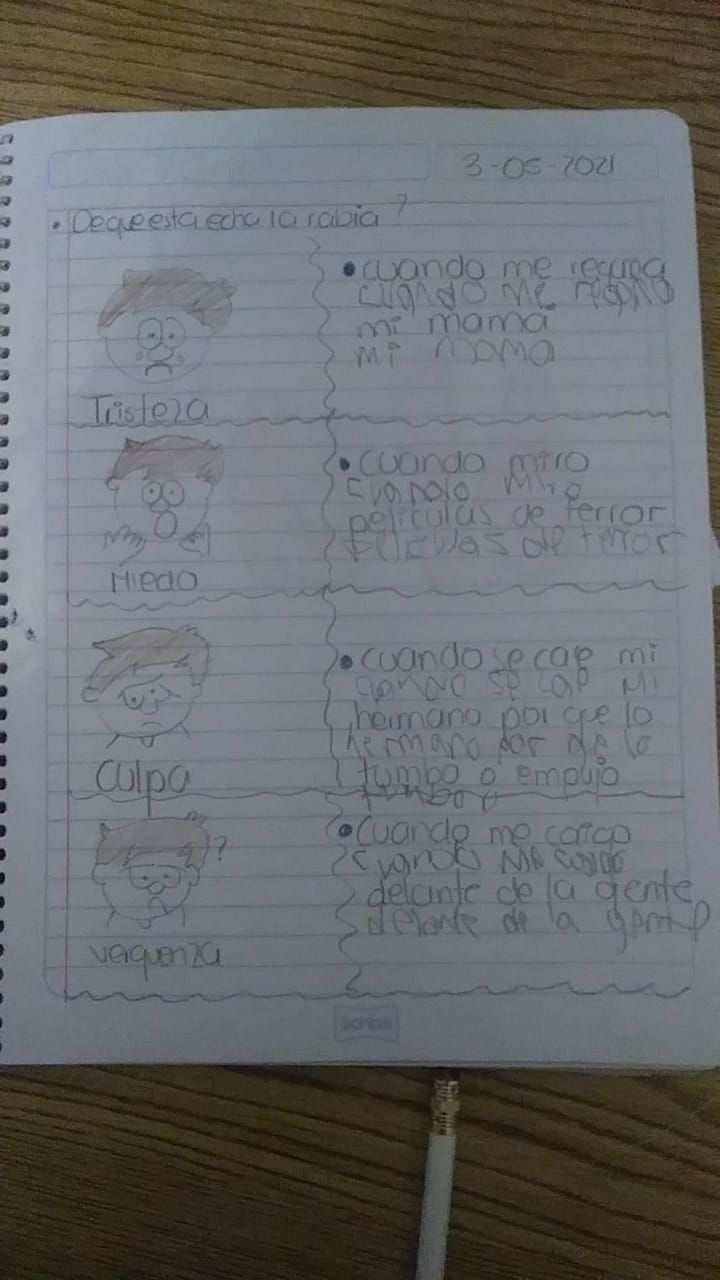 3-05-2021
• De que esta echa la rabia ?
• cuando me regaña
cuando me regaña
mi mamá
mi mama
Tristeza
• cuando miro
cuando miro
peliculas de terror
peliculas de terror
Miedo
• cuando se cae mi
cuando se cae mi
hermano por que lo
hermano por que lo
tumbo o empujo
tumbo o
Culpa
• cuando me caigo
cuando me caigo
delante de la gente
delante de la gente
?
verguenza
Scribe